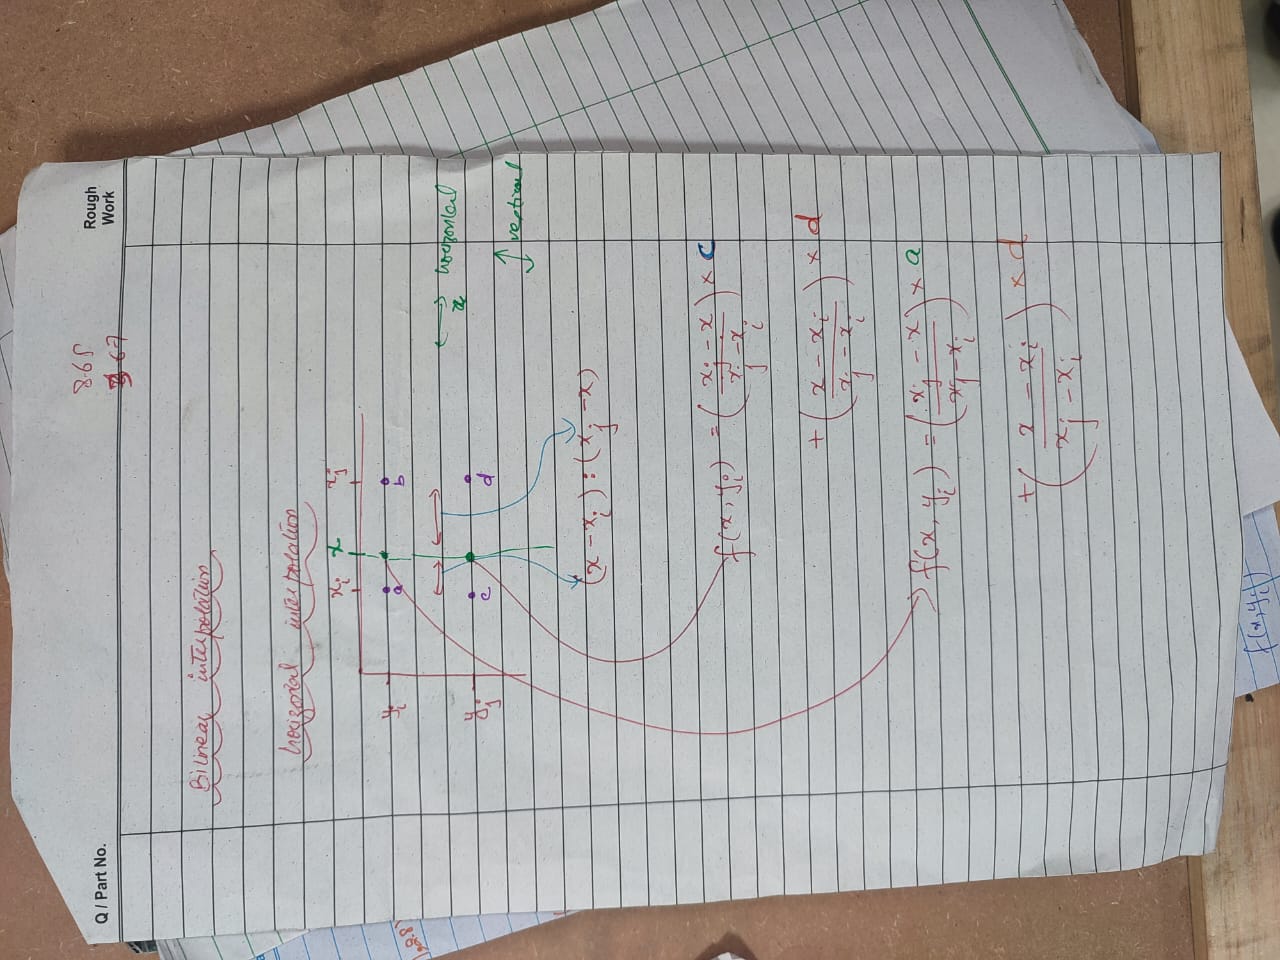 Q / Part No.
Rough
Work
8.68
67
Bilinear interpolation
horizontal interpolation
x_i x x_j
y_i a b
y_j c d
↔ horizontal
x
↕ vertical
(x - x_i) : (x_j - x)
f(x, y_j) = (x_j - x / x_j - x_i) × c
+ (x - x_i / x_j - x_i) × d
f(x, y_i) = (x_j - x / x_j - x_i) × a
+ (x - x_i / x_j - x_i) × d